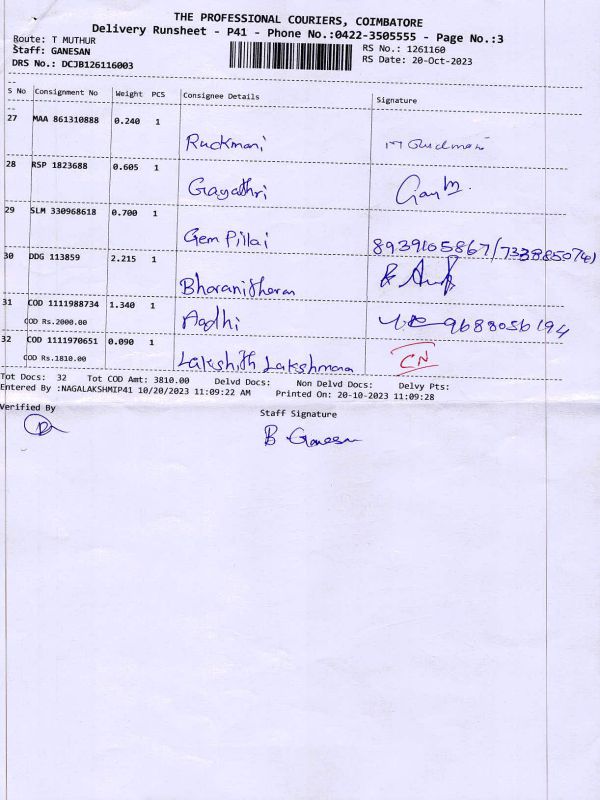 THE PROFESSIONAL COURIERS, COIMBATORE
Delivery Runsheet - P41 - Phone No.:0422-3505555 - Page No.:3
Route: T MUTHUR
Staff: GANESAN
RS No.: 1261160
DRS No.: DCJB126116003
RS Date: 20-Oct-2023
S No Consignment No Weight PCS Consignee Details Signature
27 MAA 861310888 0.240 1
Ruckmani
28 RSP 1823688 0.605 1
Gayathri
29 SLM 330968618 0.700 1
Gem Pillai 8939105867/
30 DDG 113859 2.215 1
Bharanitharan
31 COD 1111988734 1.340 1 Aadhi 9688056194
COD Rs.2000.00
32 COD 1111970651 0.090 1 CN
COD Rs.1810.00 Lakshith Lakshmana
Tot Docs: 32 Tot COD Amt: 3810.00 Delvd Docs: Non Delvd Docs: Delvy Pts:
Entered By :NAGALAKSHMIP41 10/20/2023 11:09:22 AM Printed On: 20-10-2023 11:09:28
Verified By Staff Signature
B Ganesan